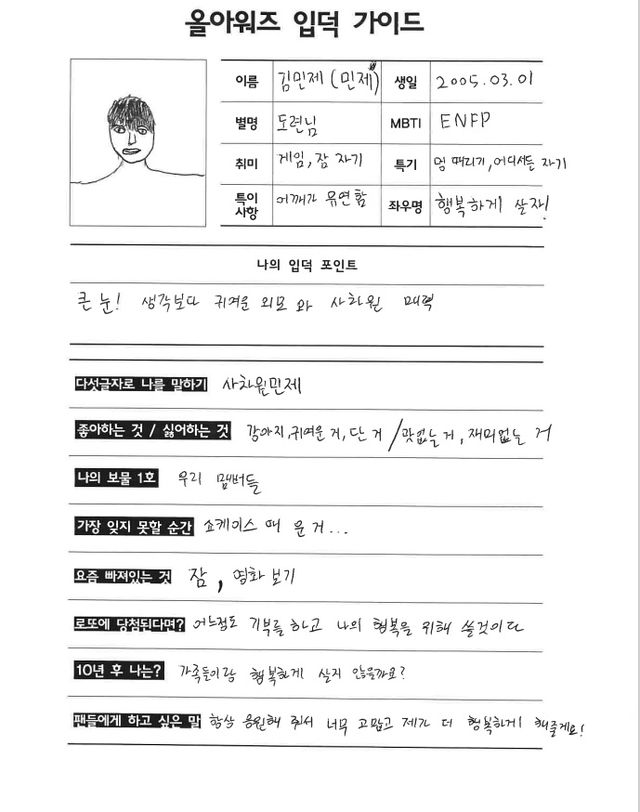 올아워즈 입덕 가이드
이름 김민제 (민제) 생일 2005.03.01
별명 도련님 MBTI ENFP
취미 게임, 잠 자기 특기 멍 때리기, 어디서든 자기
특이사항 어깨가 유연함 좌우명 행복하게 살자!
나의 입덕 포인트
큰 눈! 생각보다 귀여운 외모 와 사차원 매력
다섯글자로 나를 말하기 사차원민제
좋아하는 것 / 싫어하는 것 강아지, 귀여운 거, 단 거 / 맛없는 거, 재미없는 거
나의 보물 1호 우리 멤버들
가장 잊지 못할 순간 쇼케이스 때 운 거...
요즘 빠져있는 것 잠, 영화 보기
로또에 당첨된다면? 어느정도 기부를 하고 나의 행복을 위해 쓸것이다
10년 후 나는? 가족들이랑 행복하게 살지 않을까요?
팬들에게 하고 싶은 말 항상 응원해 줘서 너무 고맙고 제가 더 행복하게 해줄게요!